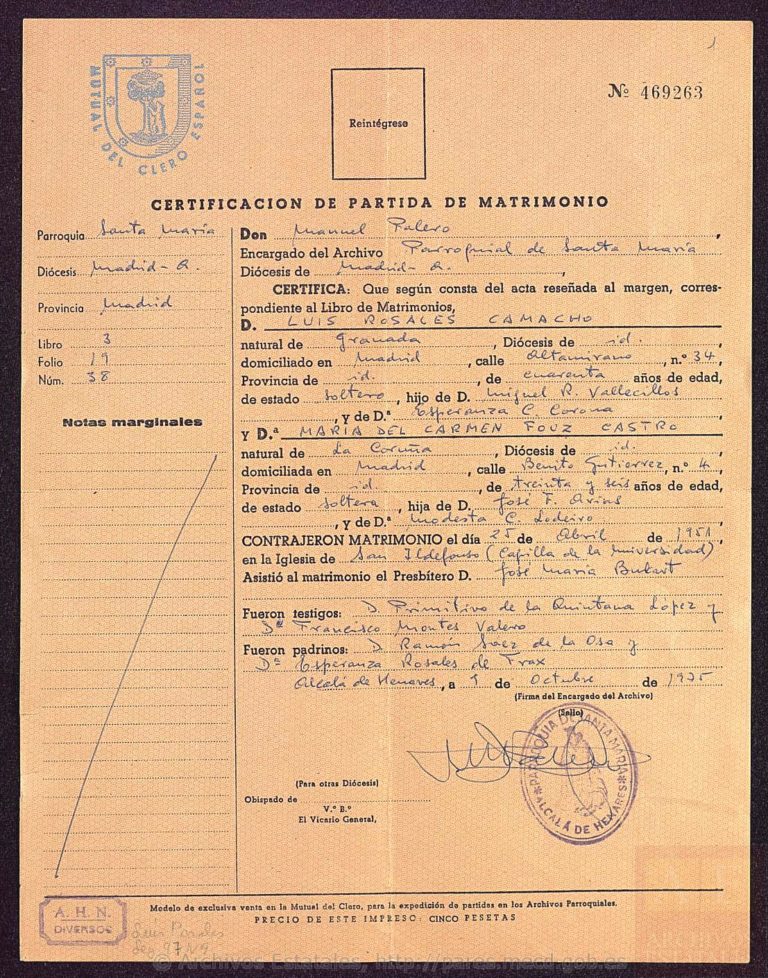 1
MUTUAL DEL CLERO ESPAÑOL
Reintégrese
Nº 469263
CERTIFICACION DE PARTIDA DE MATRIMONIO
Parroquia Santa María
Diócesis Madrid-A.
Provincia Madrid
Libro 3
Folio 19
Núm. 38
Notas marginales
Don Manuel Palero,
Encargado del Archivo Parroquial de Santa María
Diócesis de Madrid-A.,
CERTIFICA: Que según consta del acta reseñada al margen, corres-
pondiente al Libro de Matrimonios,
D. LUIS ROSALES CAMACHO
natural de Granada, Diócesis de id.,
domiciliado en Madrid, calle Altamirano, n.º 34,
Provincia de id., de cuarenta años de edad,
de estado soltero, hijo de D. Miguel R. Vallecillos
, y de D.ª Esperanza C. Corona,
y D.ª MARIA DEL CARMEN FOUZ CASTRO
natural de La Coruña, Diócesis de id.,
domiciliada en Madrid, calle Benito Gutierrez, n.º 4,
Provincia de id., de treinta y seis años de edad,
de estado soltera, hija de D. José F. Arins
, y de D.ª Modesta C. Lodeiro,
CONTRAJERON MATRIMONIO el día 25 de Abril de 1951,
en la Iglesia de San Ildefonso (Capilla de la Universidad)
Asistió al matrimonio el Presbítero D. José María Bulart
Fueron testigos: D Primitivo de la Quintana López y
Dª Francisco Montes Valero
Fueron padrinos: D Ramón Saez de la Osa y
Dª Esperanza Rosales de Trax
Alcalá de Henares, a 1 de Octubre de 1975
(Firma del Encargado del Archivo)
(Sello)
PARROQUIA DE SANTA MARIA
ALCALÁ DE HENARES
(Para otras Diócesis)
Obispado de
V.º B.º
El Vicario General,
Modelo de exclusiva venta en la Mutual del Clero, para la expedición de partidas en los Archivos Parroquiales.
PRECIO DE ESTE IMPRESO: CINCO PESETAS
A. H. N.
DIVERSOS
© Archivos Estatales, http://pares.mecd.gob.es